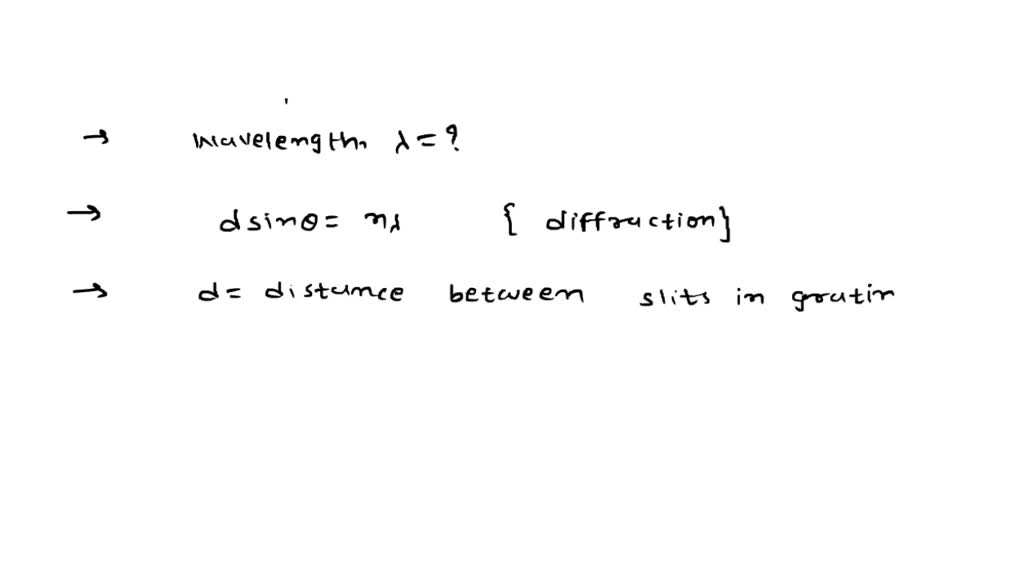 → wavelength, λ = ?
→ d sinθ = nλ { diffraction }
→ d = distance between slits in gratin